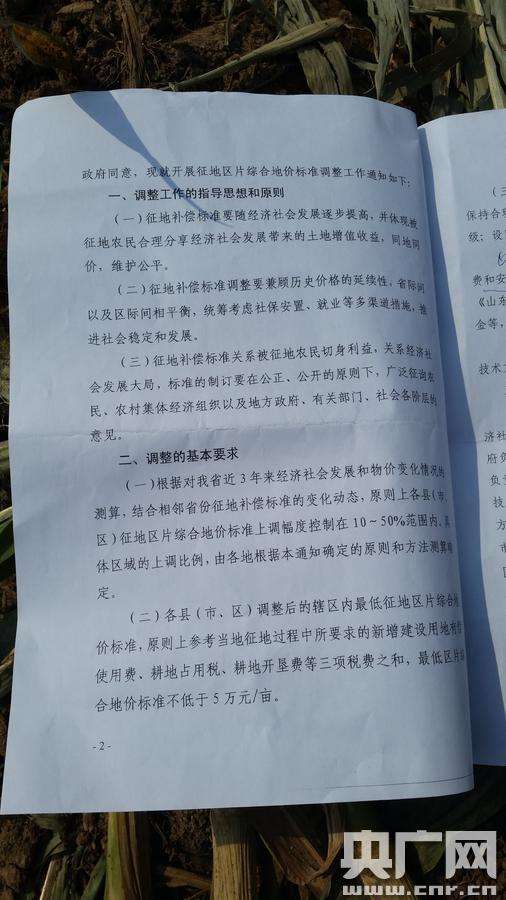 政府同意，现就开展征地区片综合地价标准调整工作通知如下：
一、调整工作的指导思想和原则
（一）征地补偿标准要随经济社会发展逐步提高，并体现被
征地农民合理分享经济社会发展带来的土地增值收益，同地同
价，维护公平。
（二）征地补偿标准调整要兼顾历史价格的延续性，省际间
以及区际间相平衡，统筹考虑社保安置、就业等多渠道措施，推
进社会稳定和发展。
（三）征地补偿标准关系被征地农民切身利益，关系经济社
会发展大局，标准的制订要在公正、公开的原则下，广泛征询农
民、农村集体经济组织以及地方政府、有关部门、社会各阶层的
意见。
二、调整的基本要求
（一）根据对我省近3年来经济社会发展和物价变化情况的
测算，结合相邻省份征地补偿标准的变化动态，原则上各县（市、
区）征地区片综合地价标准上调幅度控制在10～50%范围内，具
体区域的上调比例，由各地根据本通知确定的原则和方法测算确
定。
（二）各县（市、区）调整后的辖区内最低征地区片综合地
价标准，原则上参考当地征地过程中所要求的新增建设用地有偿
使用费、耕地占用税、耕地开垦费等三项税费之和，最低区片综
合地价标准不低于5万元/亩。
- 2 -
（三
保持合理
级；设
费和安
《山东
金等，
技术
济社
府负
负
技
市
央广网
www.cnr.cn